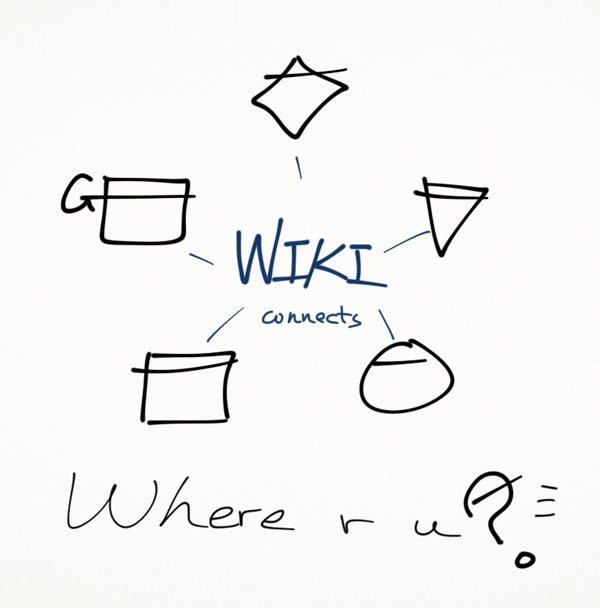 G
WIKI
connects
Where r u?